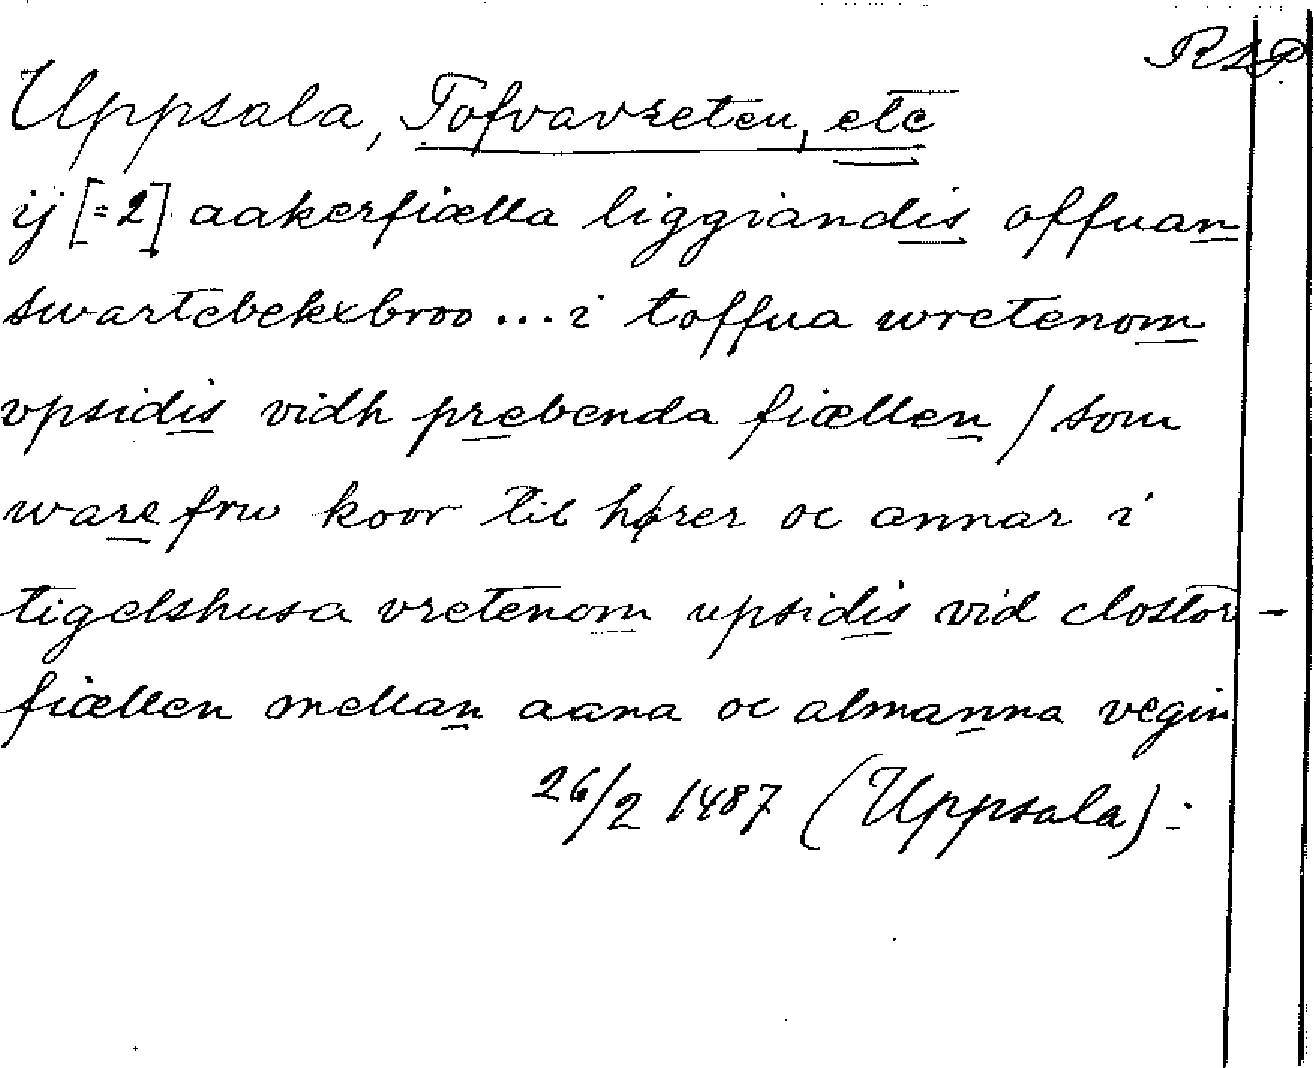 RAP
Uppsala, Tofvavreten, etc
ij [=2] aakerfiælla liggiandis offuan
swartebekxbroo ... i toffua wretenom
vpsidis vidh prebenda fiællen / som
ware frw koor til hører oc annar i
tigelshusa vretenom upsidis vid clostor-
fiællen mellan aana oc almanna vegin
26/2 1487 (Uppsala):